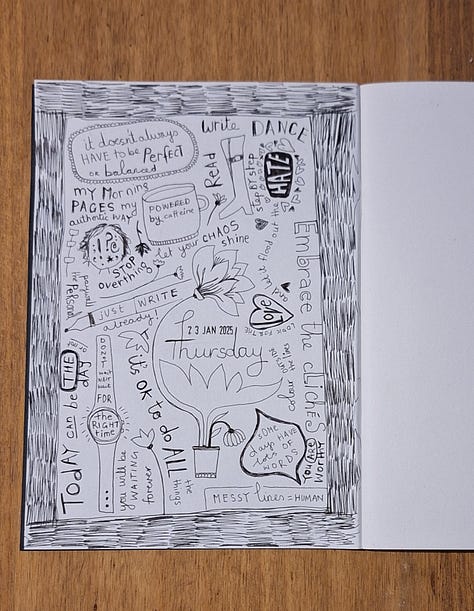 it doesn't always
HAVE to be Perfect
or balanced
write DANCE
Read
step BY step
HATE
my Morning
PAGES my
authentic way
POWERED
by caffeine
let your CHAOS
shine
and let it flood out the
!?
STOP
overthing
imPersonal
painful
just WRITE
already!
Embrace the clichés
Love
LOOK FOR THE
23 JAN 2025
Thursday
colour
the lines
Today can be THE
day
FOR
the
RIGHT
time
it's OK to do ALL
the things
you will be
WAITING
forever
SOME
days HAVE
lots OF
WORDS
YOU ARE
WORTHY
MESSY lines = HUMAN